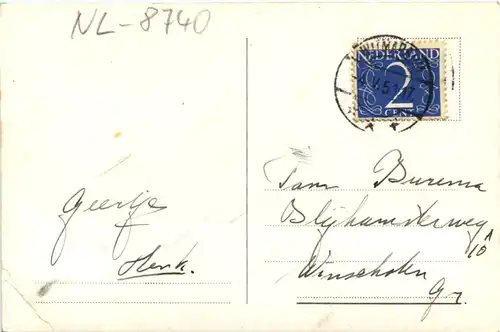 NL-8740
NEDERLAND
2
CENT
Geertje
Henk.
Fam Burema
Blijhamsterweg
10 A
Winschoten
Gr.